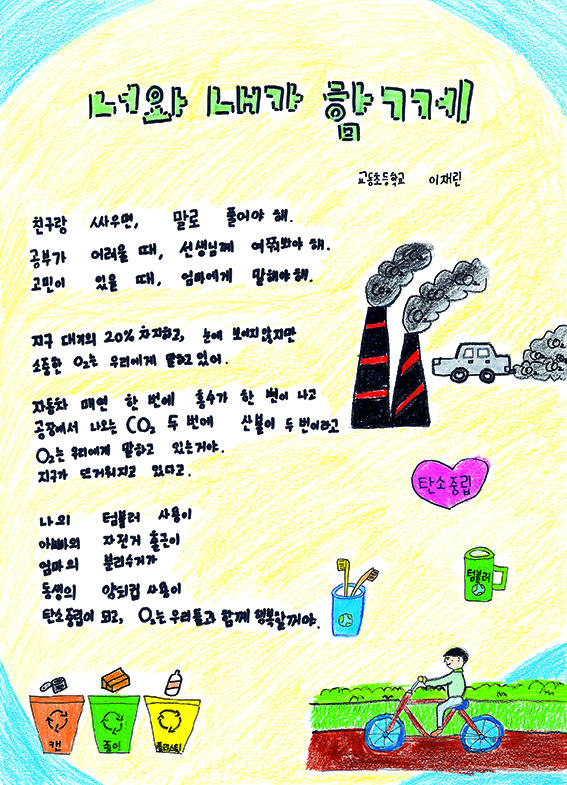 너와 내가 함께
교동초등학교 이재린
친구랑 싸우면, 말로 풀어야 해.
공부가 어려울 때, 선생님께 여쭤봐야 해.
고민이 있을 때, 엄마에게 말해야 해.
지구 대기의 20% 차지하고, 눈에 보이지않지만
소중한 O₂는 우리에게 말하고 있어.
자동차 매연 한 번에 홍수가 한 번이 나고
공장에서 나오는 CO₂ 두 번에 산불이 두 번이라고
O₂는 우리에게 말하고 있는거야.
지구가 뜨거워지고 있다고.
나의 텀블러 사용이
아빠의 자전거 출근이
엄마의 분리수거가
동생의 양치컵 사용이
탄소중립이 되고, O₂는 우리들과 함께 행복할꺼야.
탄소중립
텀블러
캔
종이
플라스틱